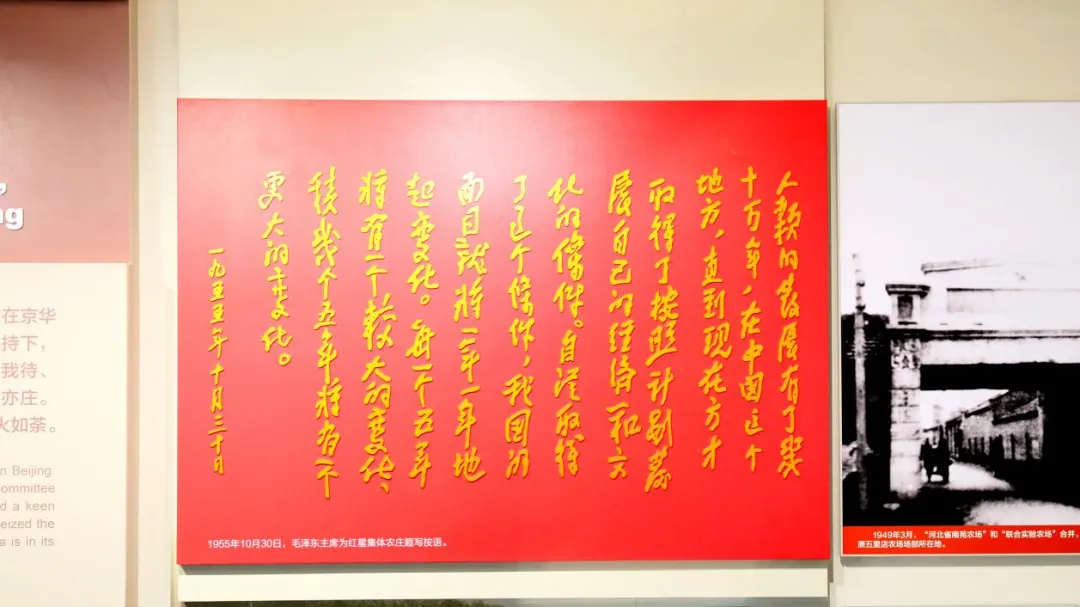 人類的發展有了幾
十万年，在中国这个
地方，直到现在方才
取得了按照计划發
展自己的经济和文
化的條件。自从取得
了这个條件，我国的
面目就将一年一年地
起变化。每一个五年
将有一个较大的变化，
积幾个五年将有一个
更大的变化。
一九五五年十月三十日
1955年10月30日，毛泽东主席为红星集体农庄题写按语。
在京华
持下，
我待、
亦庄。
火如荼。
n Beijing.
ommittee
d a keen
eized the
a is in its
1949年3月，“河北省南苑农场”和“联合实验农场”合并，
原五里店农场场部所在地。